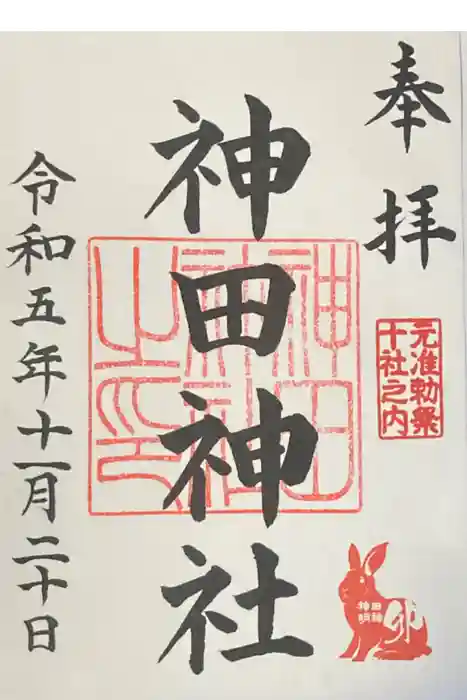 奉拝
元准勅祭
十社之内
卯
神田神社
神田神社之印
令和五年十一月二十日